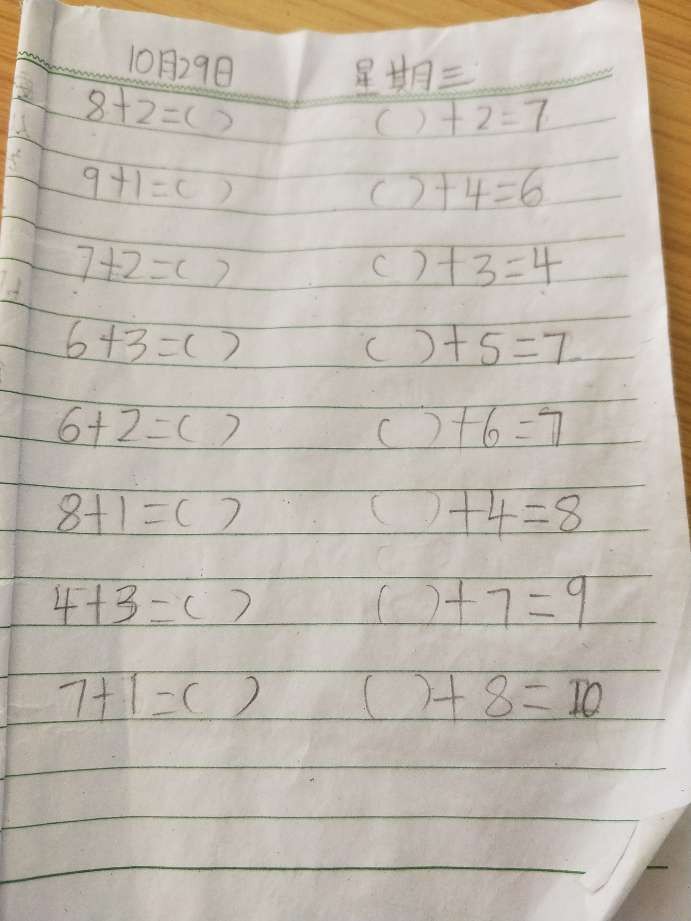 10月29日 星期三
8+2=( ) ( )+2=7
9+1=( ) ( )+4=6
7+2=( ) ( )+3=4
6+3=( ) ( )+5=7
6+2=( ) ( )+6=7
8+1=( ) ( )+4=8
4+3=( ) ( )+7=9
7+1=( ) ( )+8=10